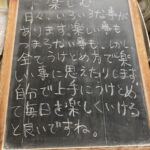 楽しむ
日々、いろいろな事が
あります。楽しい事も
つまらない事も。しかし
全てうけとめ方で楽
しい事に思えたりします。
自分で上手にうけとめ
て毎日を楽しくいける
と良いですね。